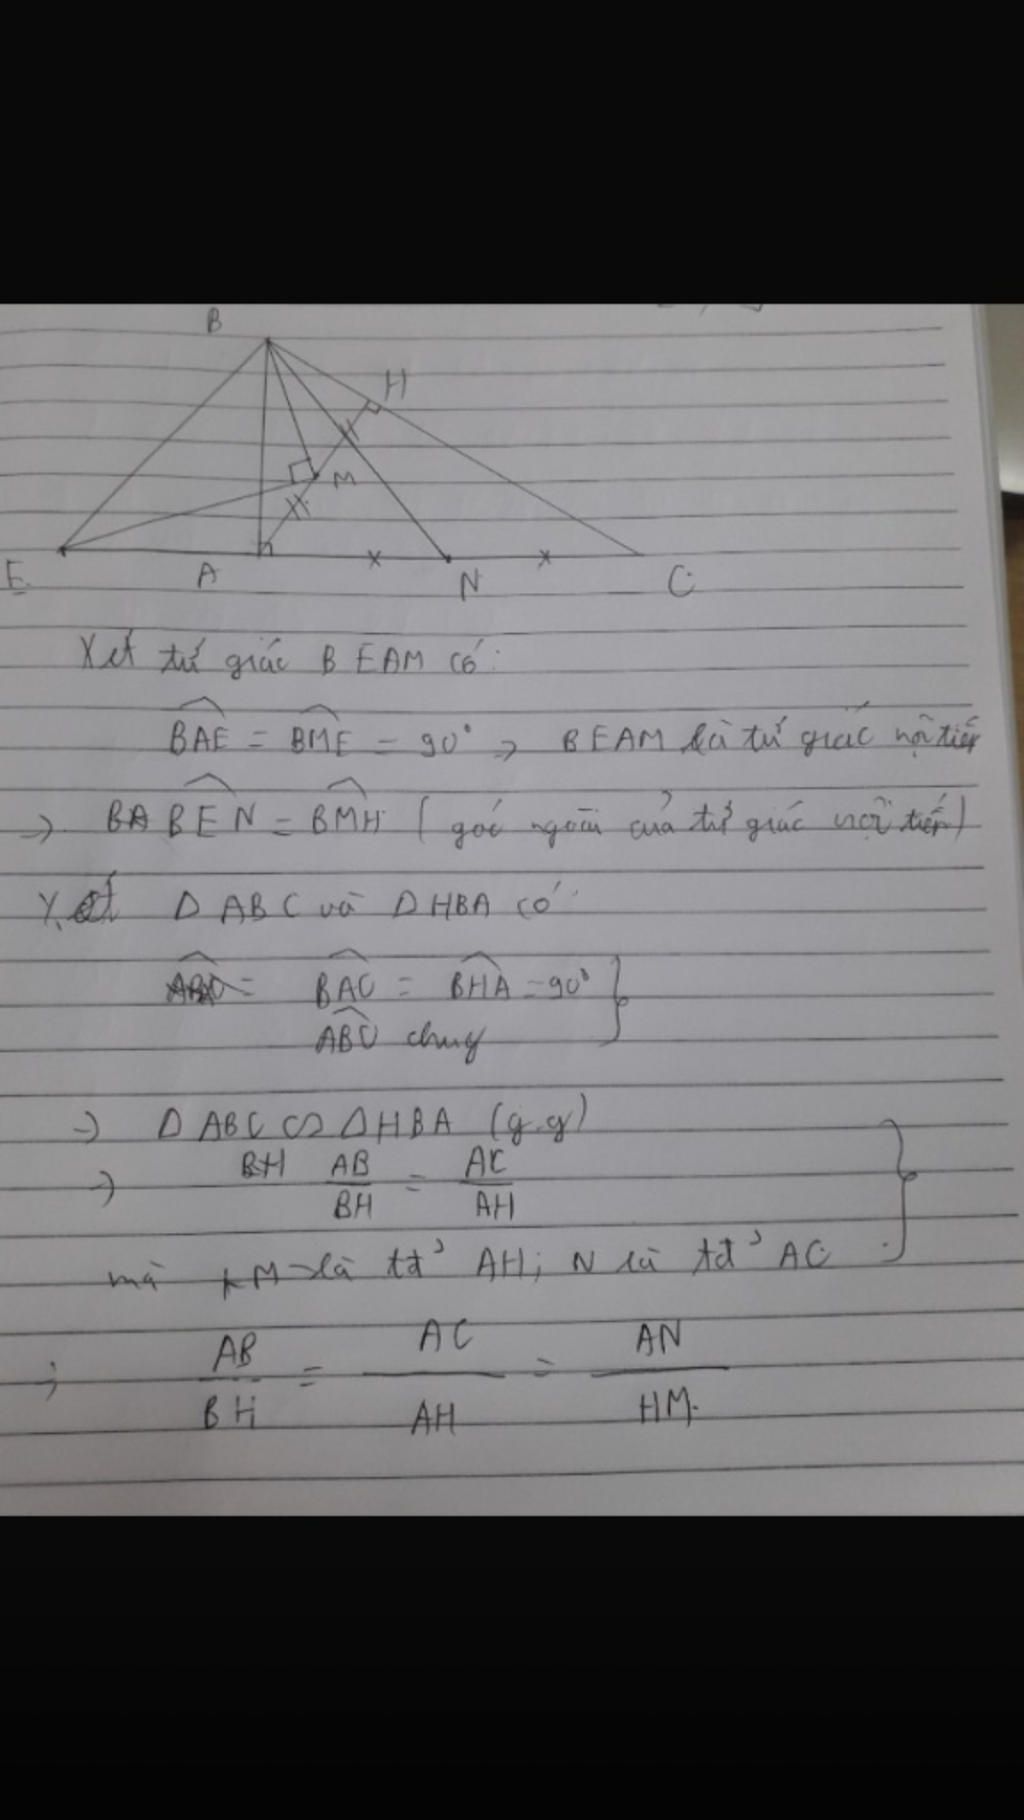 B
H
M
E
A
N
C
Xét tứ giác BEAM có:
BAE = BME = 90° → BEAM là tứ giác nội tiếp
→ BA BEN = BMH (góc ngoài của tứ giác nội tiếp)
Xét Δ ABC và Δ HBA có
= BAC = BHA = 90°
ABC chung
→ Δ ABC ∽ Δ HBA (g.g)
→ BH AB/BH = AC/AH
mà M là tđ' AH; N là tđ' AC
→ AB/BH = AC/AH = AN/HM.